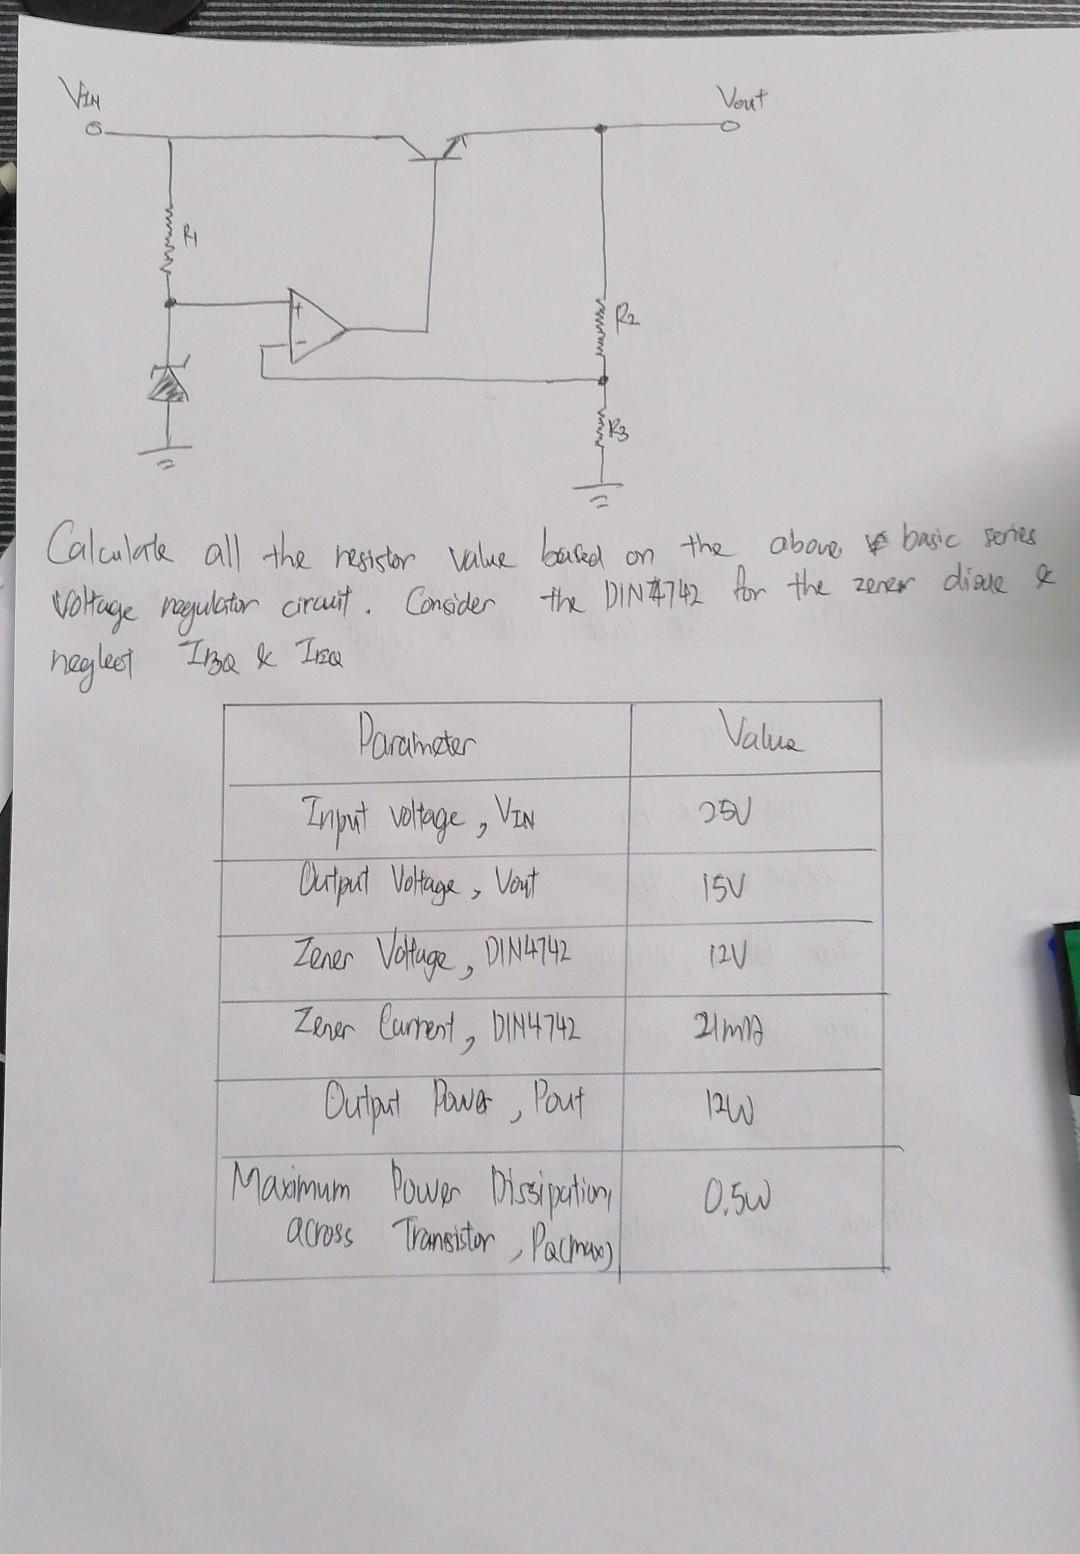 VIN
Vout
R1
+
-
R2
R3
Calculate all the resistor value based on the above basic series
voltage regulator circuit. Consider the DIN4742 for the zener diode &
neglect IBQ & IEQ
Parameter Value
Input voltage, VIN 25V
Output Voltage, Vout 15V
Zener Voltage, DIN4742 12V
Zener Current, DIN4742 21mA
Output Power, Pout 12W
Maximum Power Dissipation, 0.5W
across Transistor, PQ(max)